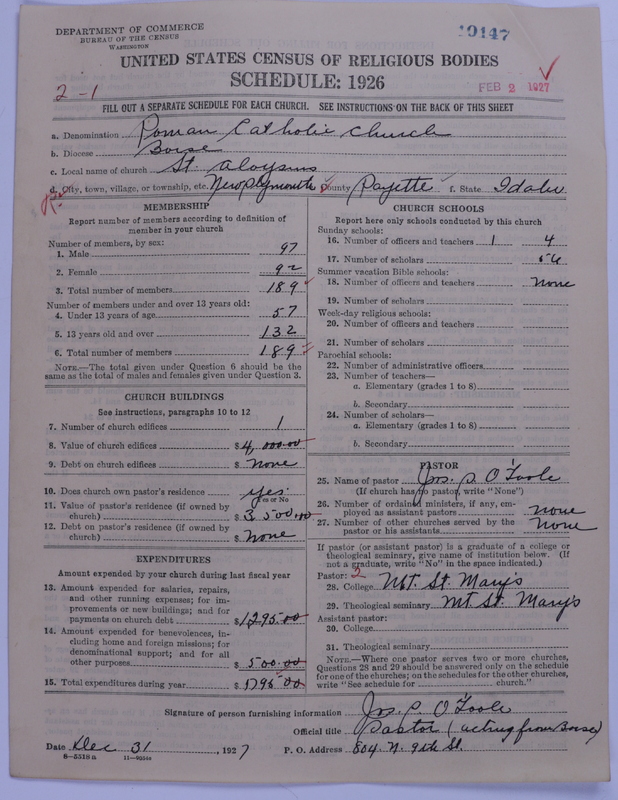 DEPARTMENT OF COMMERCE
BUREAU OF THE CENSUS
WASHINGTON
10147
UNITED STATES CENSUS OF RELIGIOUS BODIES
SCHEDULE: 1926
2-1
FEB 2 1927
FILL OUT A SEPARATE SCHEDULE FOR EACH CHURCH. SEE INSTRUCTIONS ON THE BACK OF THIS SHEET
a. Denomination Roman Catholic Church
b. Diocese Boise
c. Local name of church St. Aloysius
d. City, town, village, or township, etc. New Plymouth County Payette f. State Idaho
MEMBERSHIP
Report number of members according to definition of
member in your church
Number of members, by sex:
1. Male 97
2. Female 92
3. Total number of members 189
Number of members under and over 13 years old:
4. Under 13 years of age 57
5. 13 years old and over 132
6. Total number of members 189
NOTE.—The total given under Question 6 should be
same as the total of males and females given under Question 3.
CHURCH BUILDINGS
See instructions, paragraphs 10 to 12
7. Number of church edifices 1
8. Value of church edifices $4,000.00
9. Debt on church edifices $ None
10. Does church own pastor's residence yes
Yes or No
11. Value of pastor's residence (if owned by
church) $3,500.00
12. Debt on pastor's residence (if owned by
church) $ None
EXPENDITURES
Amount expended by your church during last fiscal year
13. Amount expended for salaries, repairs,
and other running expenses; for im-
provements or new buildings; and for
payments on church debt $1295.00
14. Amount expended for benevolences, in-
cluding home and foreign missions; for
denominational support; and for all
other purposes $500.00
15. Total expenditures during year $1795.00
CHURCH SCHOOLS
Report here only schools conducted by this church
Sunday schools:
16. Number of officers and teachers 1 4
17. Number of scholars 56
Summer vacation Bible schools:
18. Number of officers and teachers None
19. Number of scholars
Week-day religious schools:
20. Number of officers and teachers
21. Number of scholars
Parochial schools:
22. Number of administrative officers
23. Number of teachers—
a. Elementary (grades 1 to 8)
b. Secondary
24. Number of scholars—
a. Elementary (grades 1 to 8)
b. Secondary
PASTOR
25. Name of pastor Jos. P. O'Toole
(If church has no pastor, write "None")
26. Number of ordained ministers, if any, em-
ployed as assistant pastors None
27. Number of other churches served by the
pastor or his assistants None
If pastor (or assistant pastor) is a graduate of a college or
theological seminary, give name of institution below. (If
not a graduate, write "No" in the space indicated.)
Pastor: 2
28. College Mt. St. Mary's
29. Theological seminary Mt St. Mary's
Assistant pastor:
30. College
31. Theological seminary
NOTE.—Where one pastor serves two or more churches,
Questions 28 and 29 should be answered only on the schedule
for one of the churches; on the schedules for the other churches,
write "See schedule for church."
Signature of person furnishing information Jos. P. O'Toole
Official title Pastor (acting from Boise)
Date Dec 31, 1927 P. O. Address 804 N. 9th St.
8-5518 a